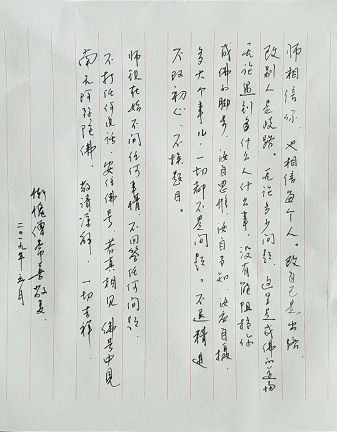 师相信你，也相信每个人。改自己是出路，
改别人是歧路。无论多少问题，这里是成佛的道场
无论遇到多什么人什么事，没有能阻挡你
成佛的脚步，汝自思惟，汝自了知，汝应自摄
多大个事儿，一切都不是问题。不退精进
不改初心，不换题目。
师现在始不问任何事情，不回答任何问题，
不打任何妄语，安住佛号，若真相见，佛号中见
南无阿弥陀佛，敬请谅解，一切吉祥。
惭愧僧
二〇一九年五月